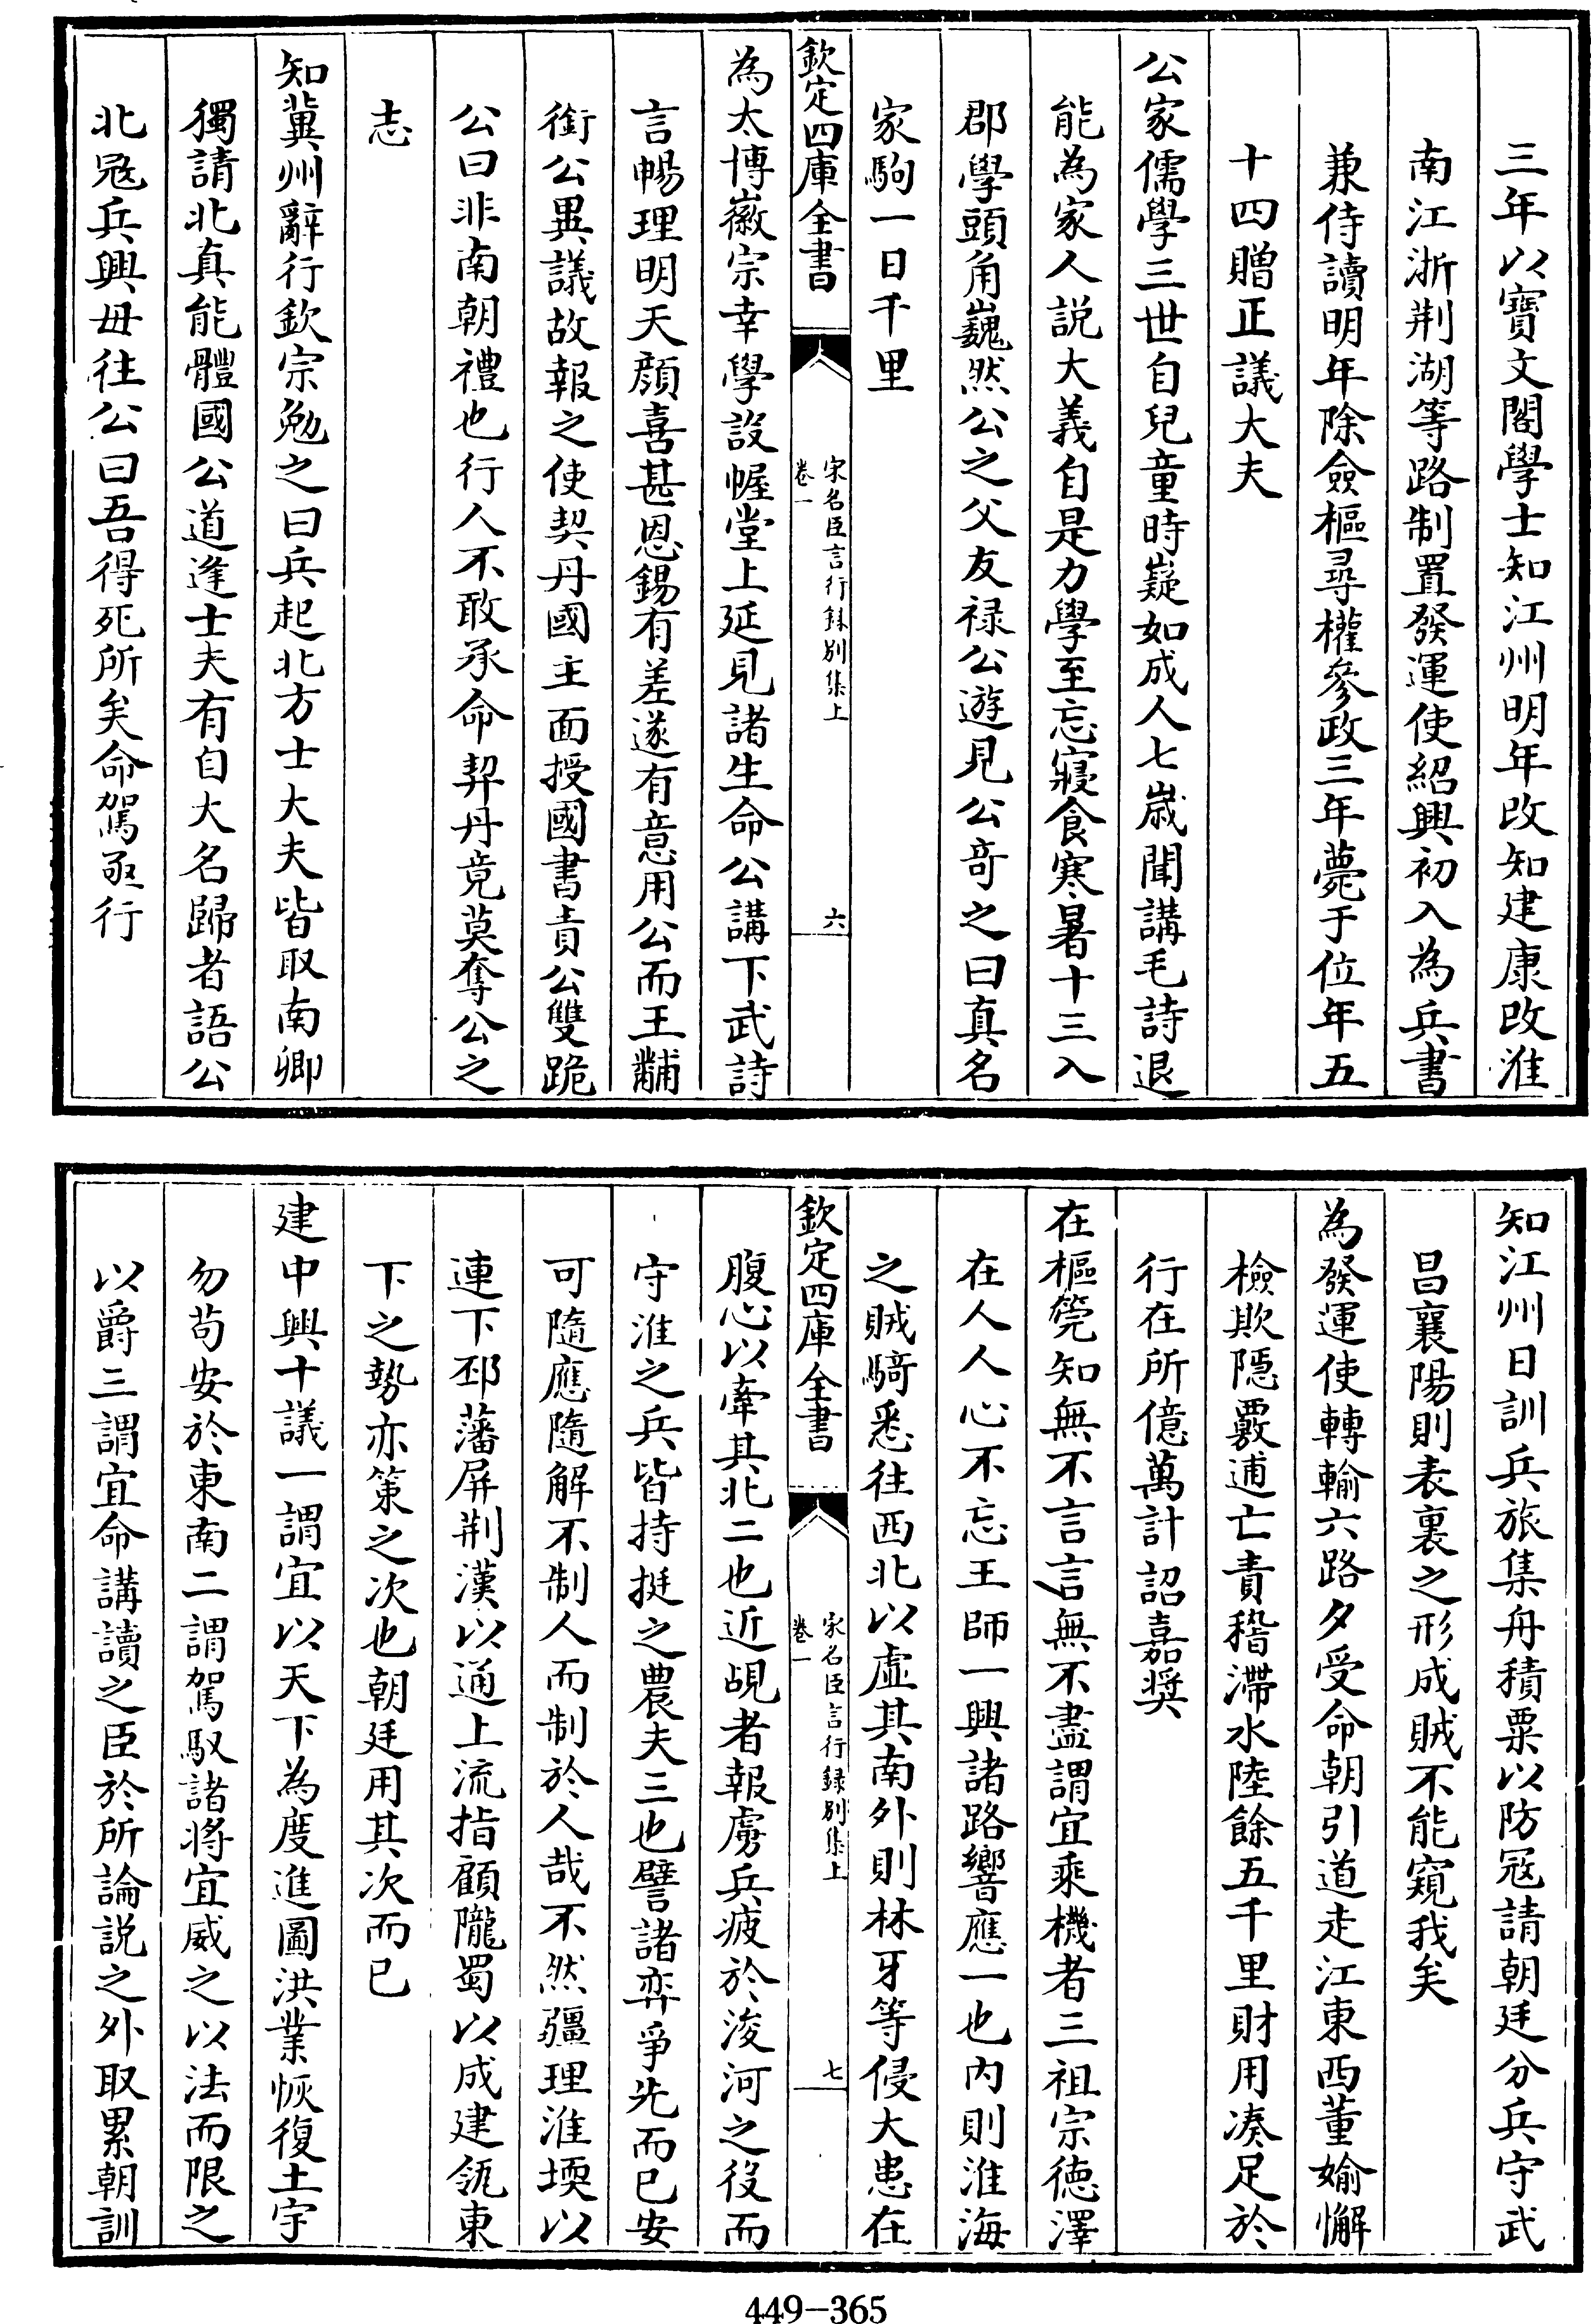 三年以寶文閣學士知江州明年改知建康改淮
南江浙荆湖等路制置發運使紹興初入為兵書
兼侍讀明年除僉樞尋權參政三年薨于位年五
十四贈正議大夫
公家儒學三世自兒童時嶷如成人七歳聞講毛詩退
能為家人説大義自是力學至忘寢食寒暑十三入
郡學頭角巍然公之父友禄公遊見公竒之曰真名
家駒一日千里
欽定四庫全書
宋名臣言行録别集上
卷一
六
為太博徽宗幸學設幄堂上延見諸生命公講下武詩
言暢理明天顔喜甚恩錫有差遂有意用公而王黼
銜公異議故報之使契丹國主面授國書責公雙跪
公曰非南朝禮也行人不敢承命契丹竟莫奪公之
志
知冀州辭行欽宗勉之曰兵起北方士大夫皆取南卿
獨請北真能體國公道逢士夫有自大名歸者語公
北冦兵興毋往公曰吾得死所矣命駕亟行
知江州日訓兵旅集舟積粟以防冦請朝廷分兵守武
昌襄陽則表裏之形成賊不能窺我矣
為發運使轉輸六路夕受命朝引道走江東西董媮懈
檢欺隠覈逋亡責稽滯水陸餘五千里財用凑足於
行在所億萬計詔嘉奬
在樞筦知無不言言無不盡謂宜乘機者三祖宗徳澤
在人人心不忘王師一興諸路響應一也内則淮海
之賊騎悉往西北以虚其南外則林牙等侵大患在
欽定四庫全書
宋名臣言行録别集上
卷一
七
腹心以牽其北二也近覘者報虜兵疲於浚河之役而
守淮之兵皆持挺之農夫三也譬諸弈爭先而已安
可隨應隨解不制人而制於人哉不然疆理淮堧以
連下邳藩屏荆漢以通上流指顧隴蜀以成建瓴東
下之勢亦策之次也朝廷用其次而已
建中興十議一謂宜以天下為度進圖洪業恢復土宇
勿苟安於東南二謂駕馭諸將宜威之以法而限之
以爵三謂宜命講讀之臣於所論説之外取累朝訓
449-365